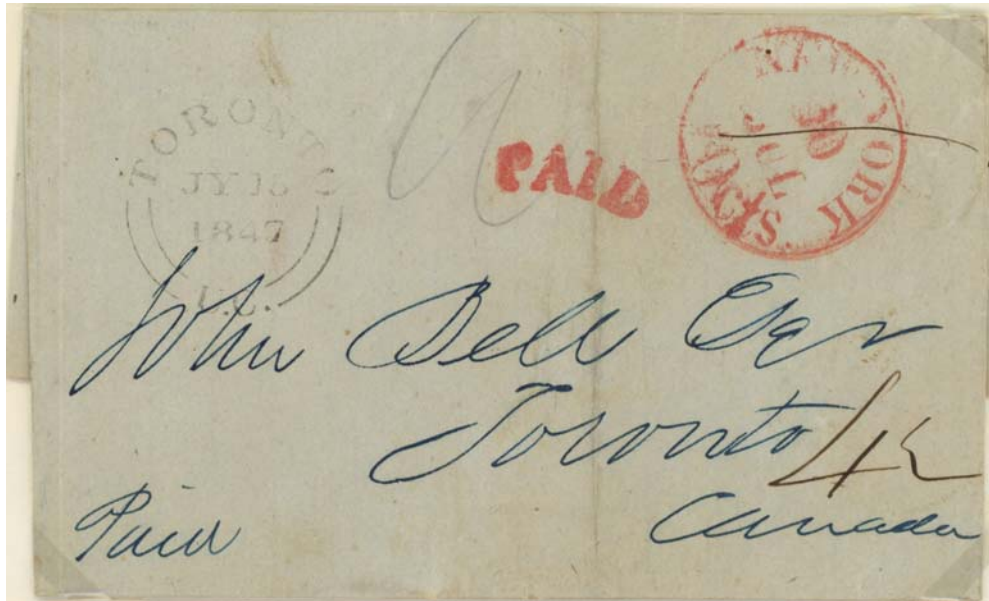 TORONTO
JY 15
1847
U.C.
PAID
NEW YORK
JUL
10
5 cts
John Bell Esqr
Toronto
Canada
Paid